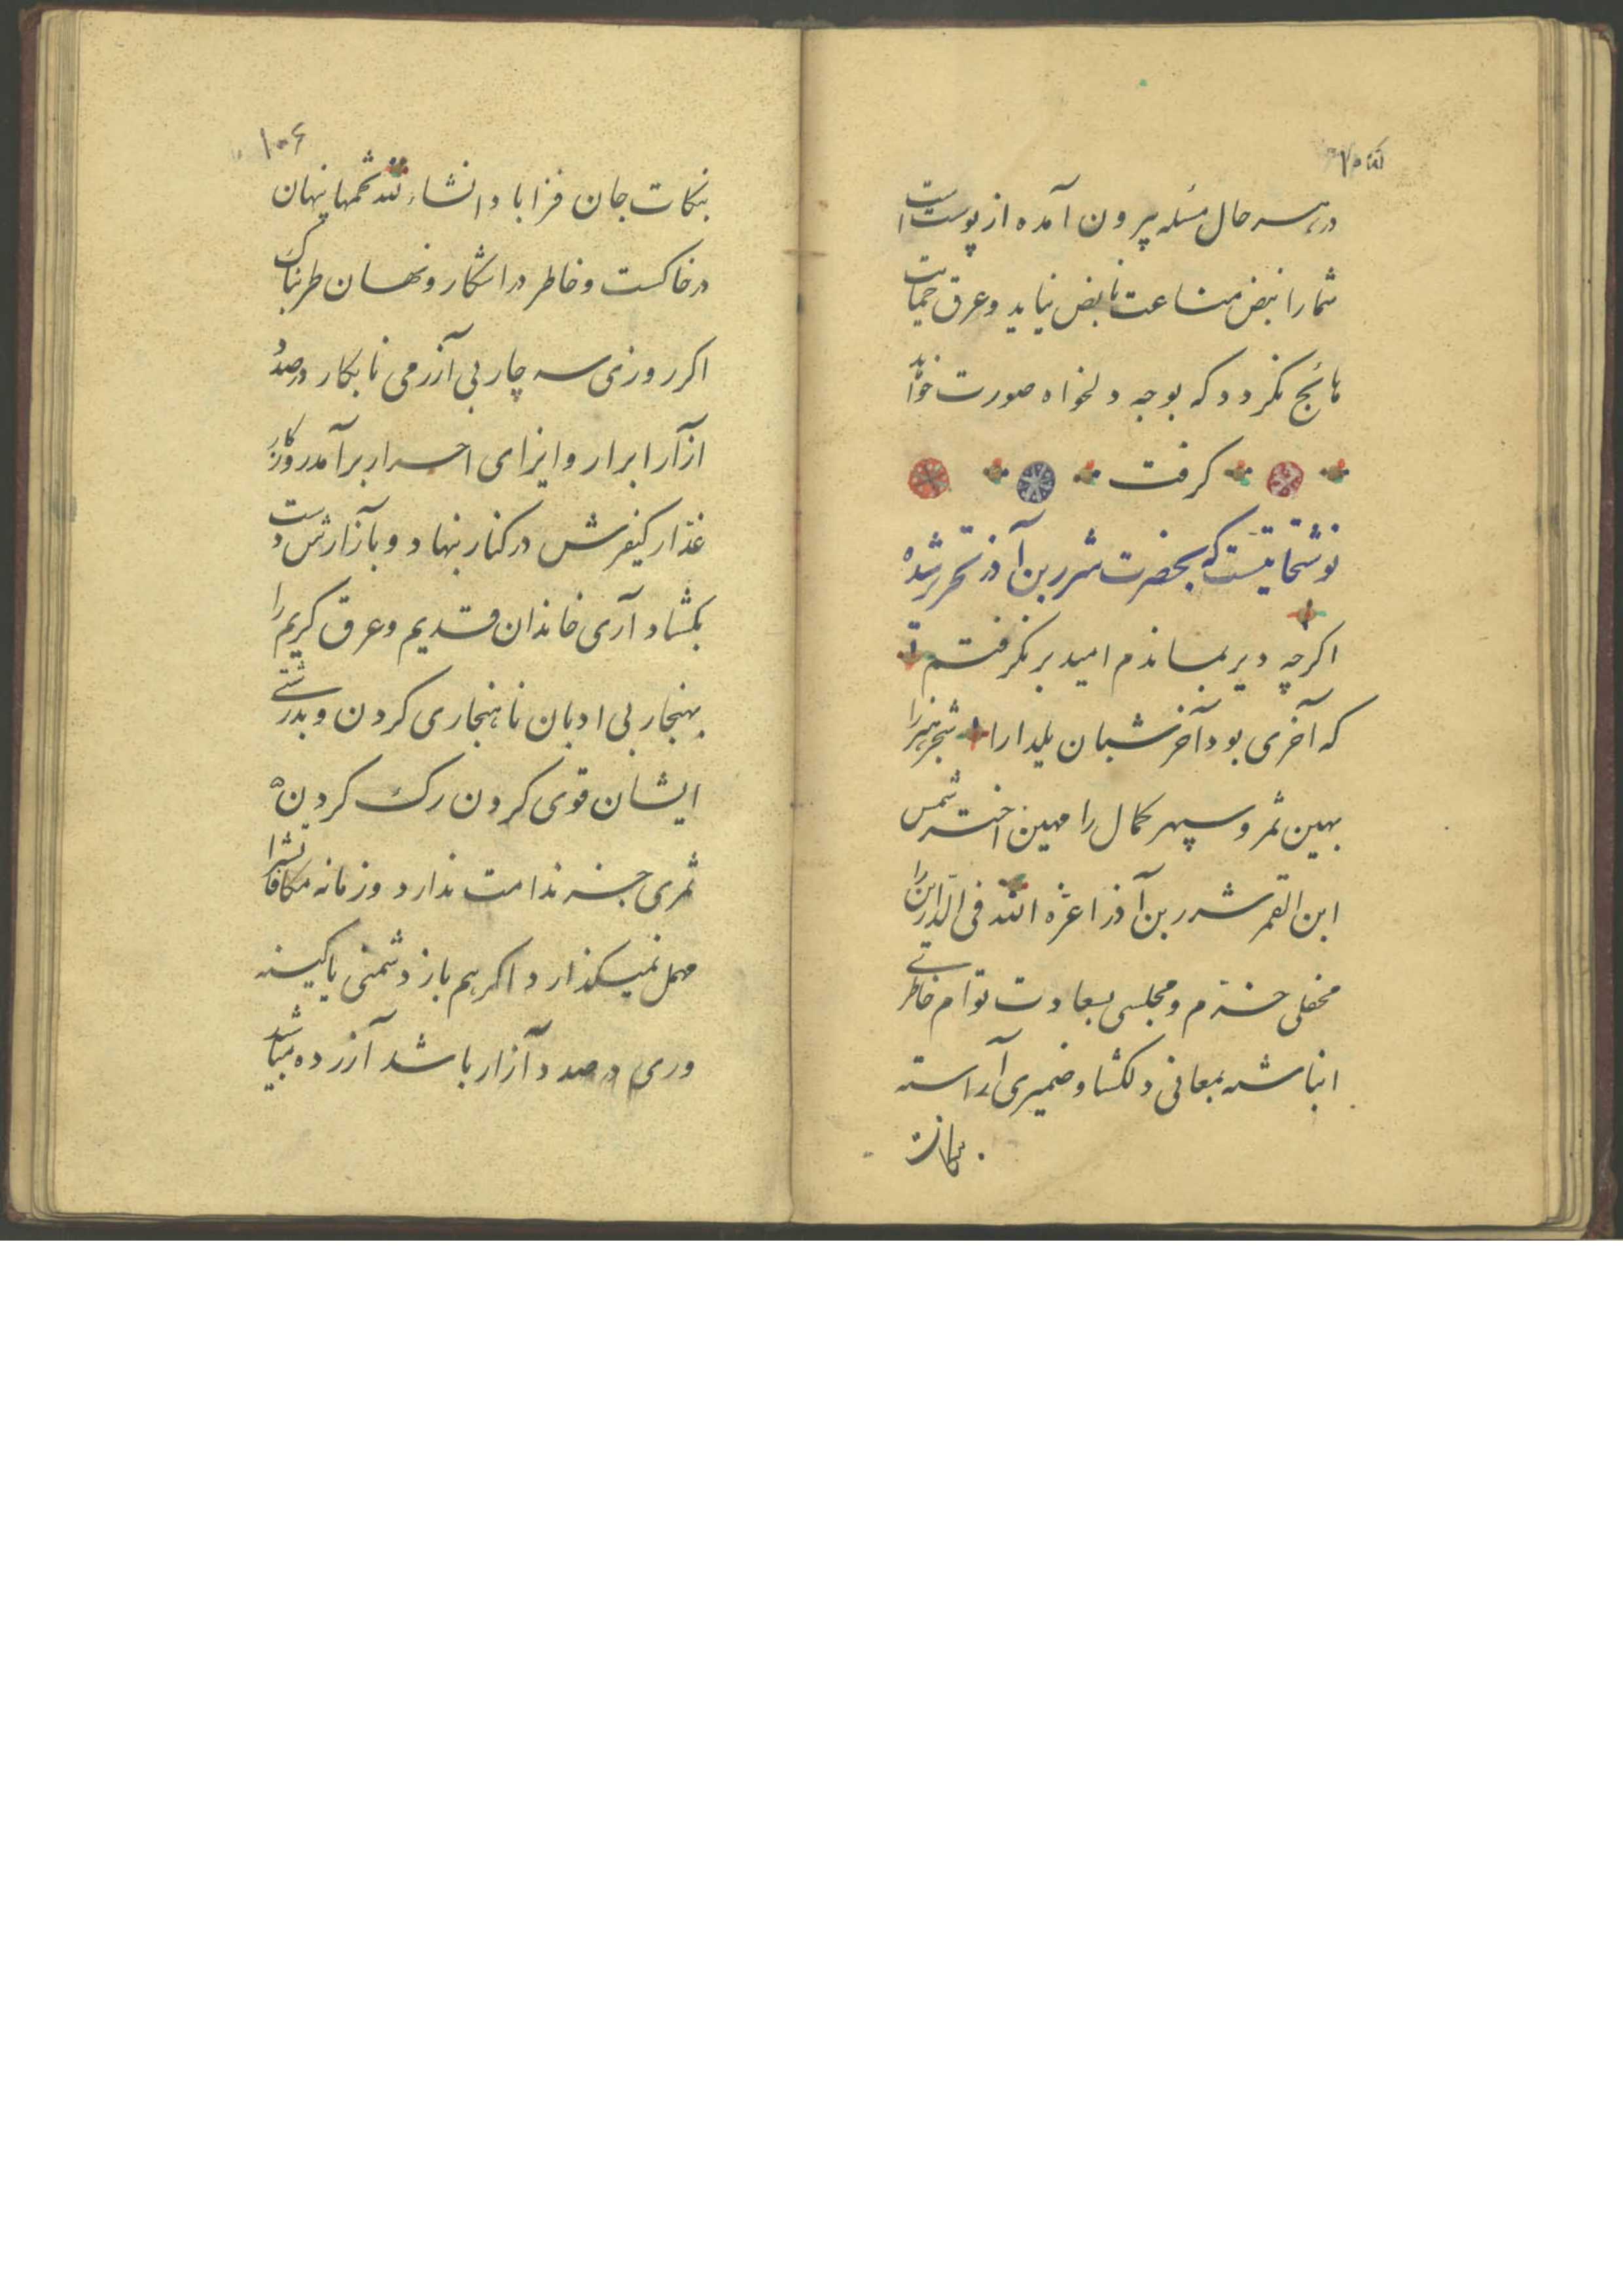 در هر سه حال مسئله بیرون آمده از پوست است
شما را نبض مناعت نابض نیاید و عرق حمیات
هایج نکردد که بوجه دلخواه صورت خواهد
کرفت
نوشتجاتیست که بحضرت شرر بن آذر تحریر شده
اکرچه دیر بماندم امید بر نکرفتم
که آخری بود آخر شبان یلدا را شجر هنر را
بهین ثمر و سپهر کمال را مهین اختر شمس
ابن القمر شرر بن آذر اعزه الله فی الدارین را
محفلی خرم و مجلسی بسعادت توأم خاطری
انباشته بمعانی دلکشا و ضمیری آراسته
بنکات
۱۰۶
بنکات جان فزا باد انشاء الله تخمها پنهان
در خاکست و خاطر در اشکار و نهان طربناک
اکر روزی سه چار بی آزرمی نابکار در صدد
آزار ابرار و ایزای احرار برآمد روزکار
غدار کیفرش در کنار بنهاد و بآزارش دست
بکشاد آری خاندان قدیم و عرق کریم را
بهنجار بی ادبان ناهنجاری کردن و بدرشتی
ایشان قوی کردن رک کردن
ثمری جز ندامت ندارد و زمانه مکافاتش را
مهمل نمیکذارد اکر هم باز دشمنی یا کینه
وری در صدد آزار باشد آزرده مباشید